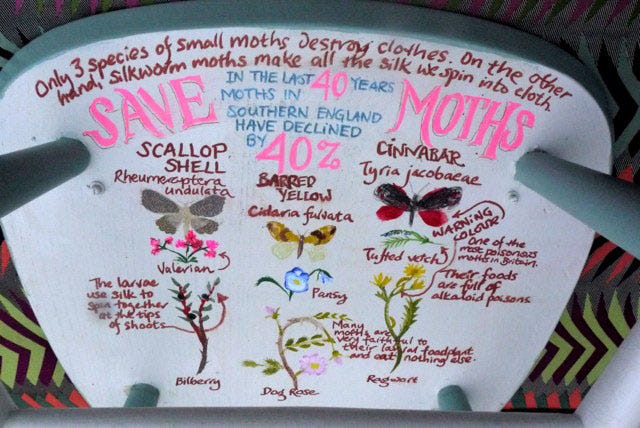 Only 3 species of small moths destroy clothes. On the other
hand, silkworm moths make all the silk we spin into cloth.
SAVE MOTHS
IN THE LAST 40 YEARS
MOTHS IN
SOUTHERN ENGLAND
HAVE DECLINED
BY 40%
SCALLOP
SHELL
Rheumeraptera
undulata
Valerian
The larvae
use silk to
spin together
at the tips
of shoots
Bilberry
BARRED
YELLOW
Cidaria fulvata
Pansy
Many
moths are
very faithful to
their larval foodplant
and eat nothing else.
Dog Rose
CINNABAR
Tyria jacobaeae
WARNING
COLOUR
One of the
most poisonous
moths in Britain.
Tufted vetch
Their foods
are full of
alkaloid poisons
Ragwort